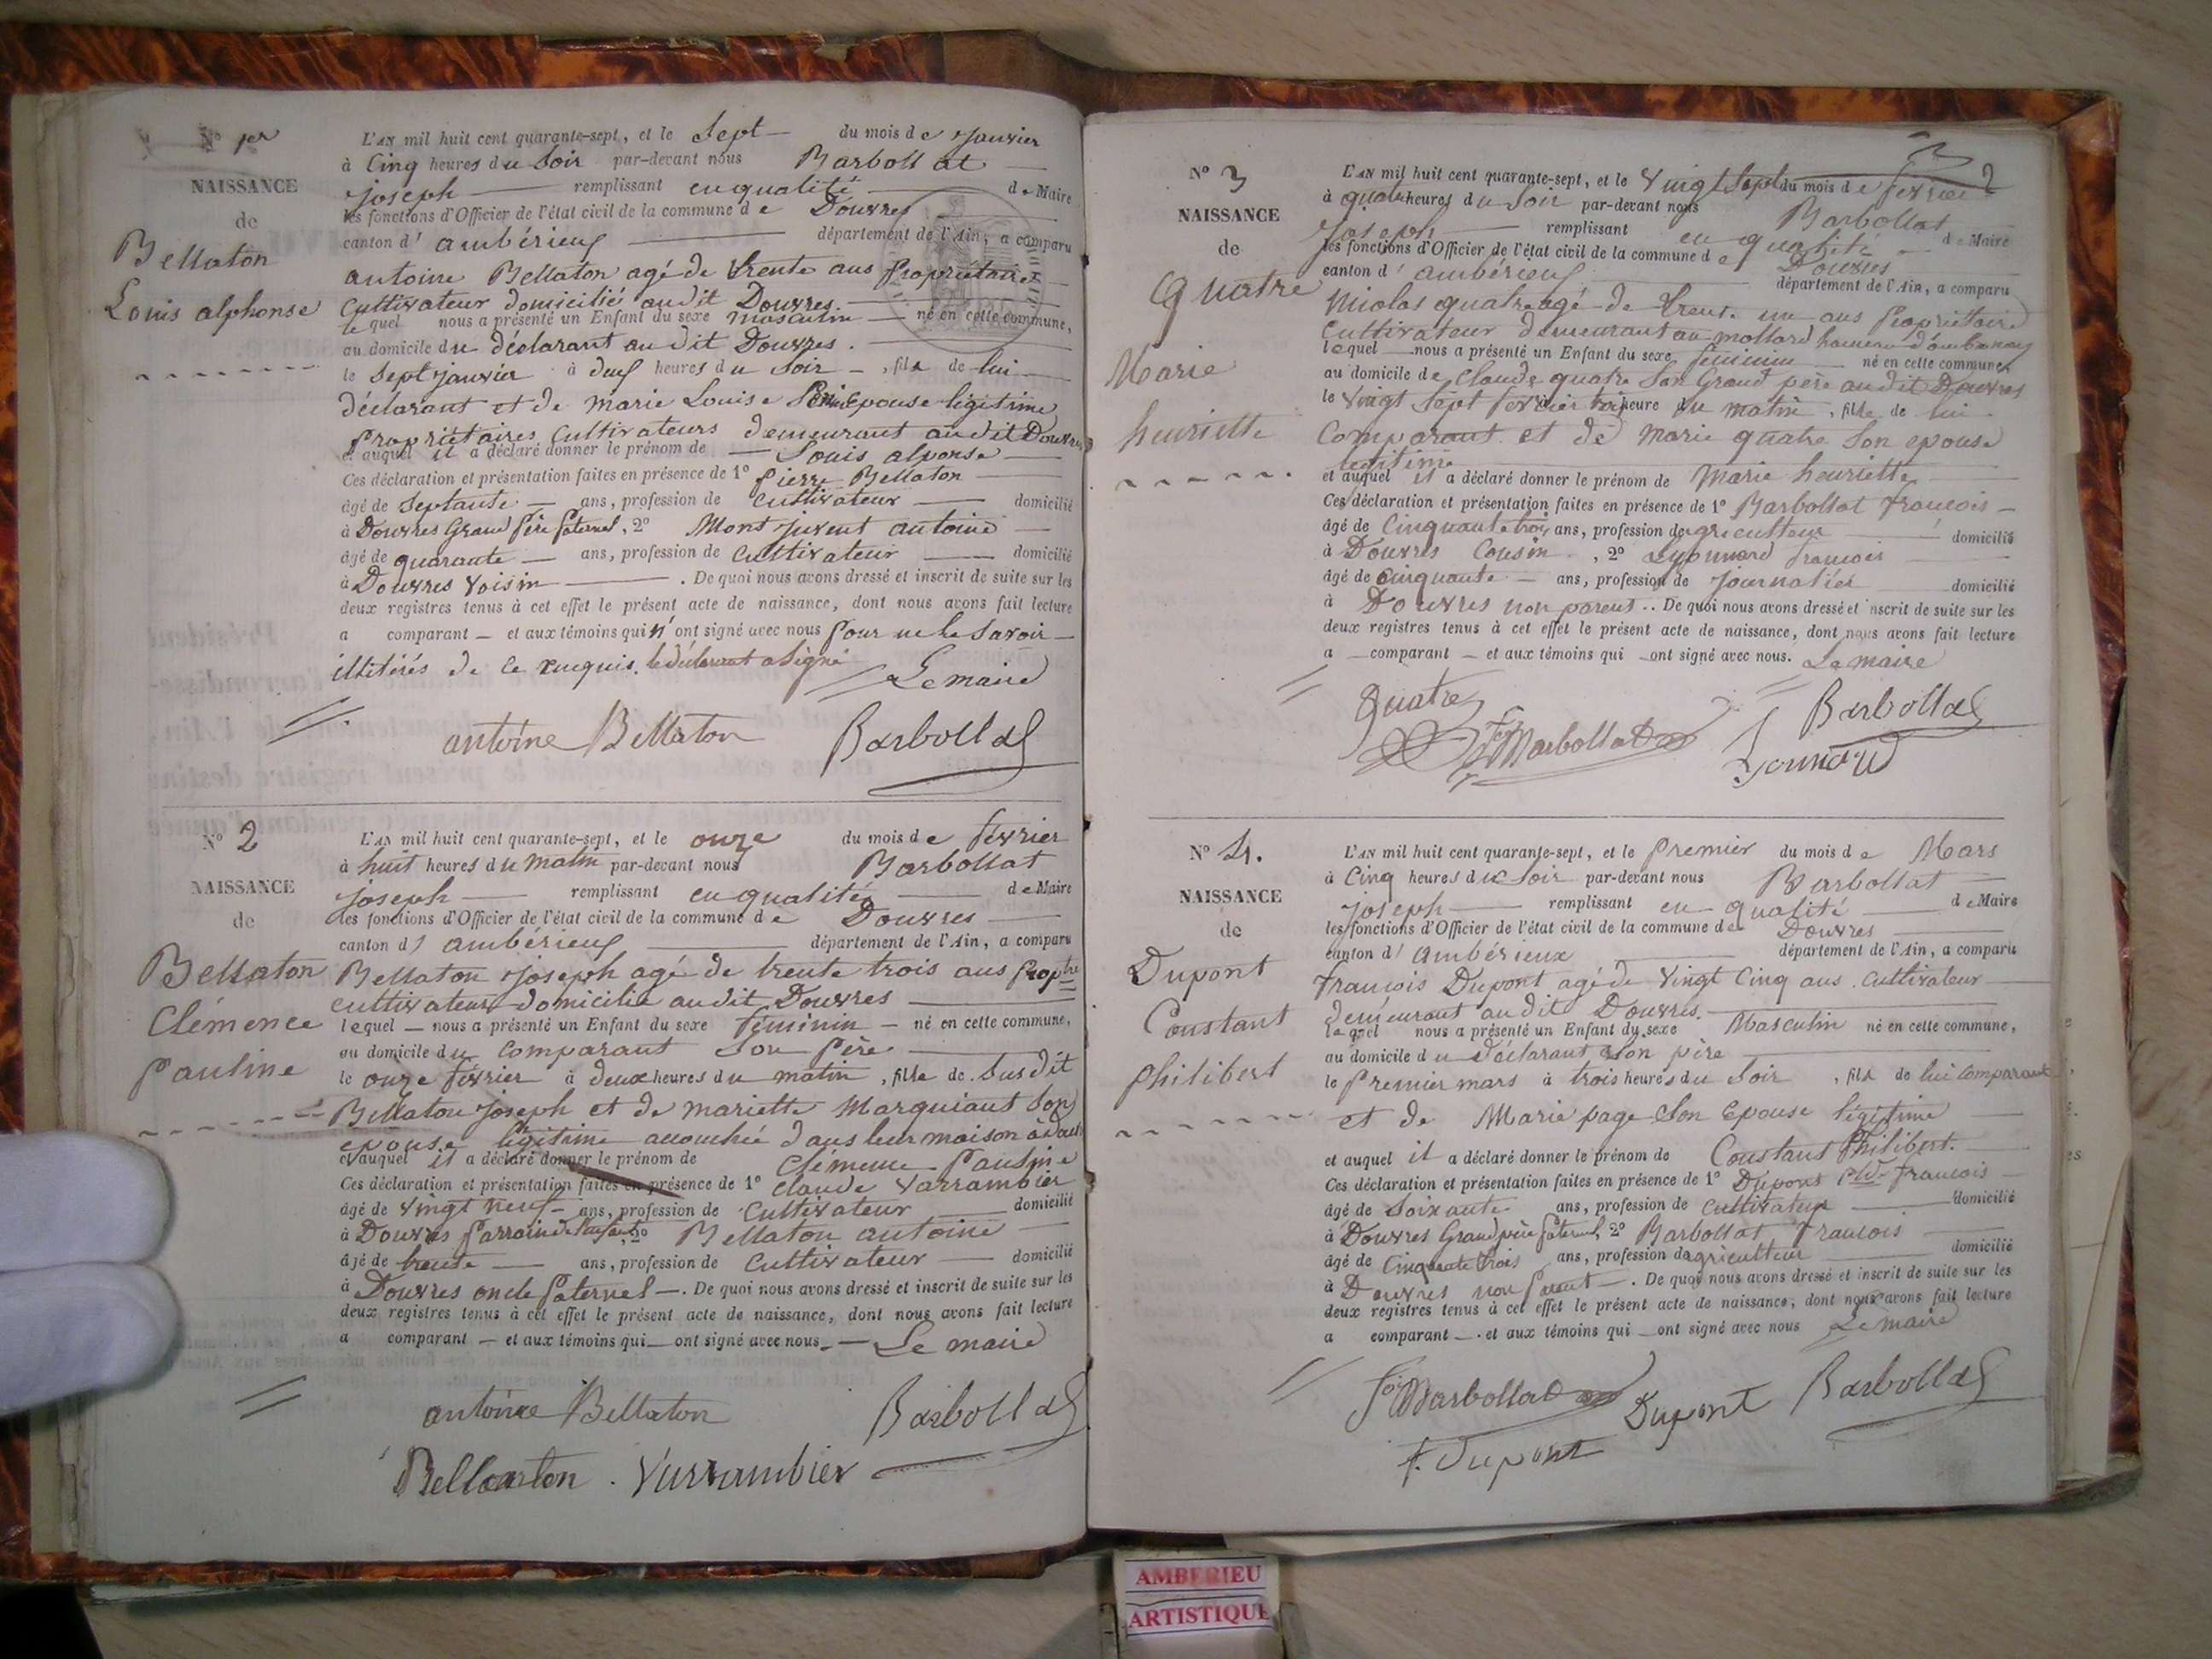 N° 1er
NAISSANCE
de
Bellaton
Louis alphonse
L'AN mil huit cent quarante-sept, et le Sept du mois de Janvier
à Cinq heures du Soir par-devant nous Barbollat
joseph remplissant en qualité de Maire
les fonctions d'Officier de l'état civil de la commune de Douvres
canton d' ambérieux département de l'Ain, a comparu
antoine Bellaton agé de trente ans Propriétaire
Cultivateur domicilié audit Douvres.
lequel nous a présenté un Enfant du sexe masculin né en cette commune,
au domicile du déclarant audit Douvres.
le Sept janvier à deux heures du Soir, fils de lui
déclarant et de marie Louise épouse légitime
Propriétaires Cultivateurs demeurant audit Douvres
et auquel il a déclaré donner le prénom de Louis alponse
Ces déclaration et présentation faites en présence de 1° Pierre Bellaton
âgé de Septante ans, profession de Cultivateur domicilié
à Douvres Grand Père Paternel, 2° Mont juvent antoine
âgé de quarante ans, profession de Cultivateur domicilié
à Douvres Voisin. De quoi nous avons dressé et inscrit de suite sur les
deux registres tenus à cet effet le présent acte de naissance, dont nous avons fait lecture
a comparant et aux témoins qui n'ont signé avec nous pour ne le Savoir
illitérés de ce requis. le déclarant a Signé
Le maire
antoine Bellaton Barbollat
N° 2
NAISSANCE
de
Bellaton
Clémence
Pauline
L'AN mil huit cent quarante-sept, et le onze du mois de février
à huit heures du matin par-devant nous Barbollat
joseph remplissant en qualité de Maire
les fonctions d'Officier de l'état civil de la commune de Douvres
canton d' ambérieux département de l'Ain, a comparu
Bellaton joseph agé de trente trois ans Proptre
cultivateur domicilié audit Douvres
lequel nous a présenté un Enfant du sexe féminin né en cette commune,
au domicile du comparant Son Père
le onze février à deux heures du matin, fille de Susdit
Bellaton joseph et de mariette Marquiant Son
epouse légitime accouchée dans leur maison à
et auquel il a déclaré donner le prénom de Clémence Pauline
Ces déclaration et présentation faites en présence de 1° Claude Varrambier
âgé de Vingt neuf ans, profession de Cultivateur domicilié
à Douvres Parrain de l'enfant, 2° Bellaton antoine
âgé de trente ans, profession de Cultivateur domicilié
à Douvres oncle Paternel. De quoi nous avons dressé et inscrit de suite sur les
deux registres tenus à cet effet le présent acte de naissance, dont nous avons fait lecture
a comparant et aux témoins qui ont signé avec nous. Le maire
antoine Bellaton Barbollat
Bellaton. Varrambier
N° 3
NAISSANCE
de
Quatre
Marie
henriette
L'AN mil huit cent quarante-sept, et le Vingt Sept du mois de février
à quatre heures du Soir par-devant nous Barbollat
Joseph remplissant en qualité de Maire
les fonctions d'Officier de l'état civil de la commune de Douvres
canton d' ambérieux département de l'Ain, a comparu
Nicolas quatre agé de trente un ans Propriétaire
Cultivateur demeurant au mollard hameau d'ambronay
lequel nous a présenté un Enfant du sexe féminin né en cette commune,
au domicile de Claude quatre Son Grand père audit Douvres
le Vingt Sept février heure du matin, fille de lui
Comparant et de marie quatre Son epouse
legitime
et auquel il a déclaré donner le prénom de Marie henriette
Ces déclaration et présentation faites en présence de 1° Barbollat françois
âgé de Cinquante trois ans, profession d'agriculteur domicilié
à Douvres Cousin, 2° Lyonnard françois
âgé de Cinquante ans, profession de journalier domicilié
à Douvres non parent. De quoi nous avons dressé et inscrit de suite sur les
deux registres tenus à cet effet le présent acte de naissance, dont nous avons fait lecture
a comparant et aux témoins qui ont signé avec nous. Le maire
Quatre Barbollat
fois Barbollat
N° 4.
NAISSANCE
de
Dupont
Constant
Philibert
L'AN mil huit cent quarante-sept, et le Premier du mois de Mars
à Cinq heures du Soir par-devant nous Barbollat
joseph remplissant en qualité de Maire
les fonctions d'Officier de l'état civil de la commune de Douvres
canton d' Ambérieux département de l'Ain, a comparu
françois Dupont agé de Vingt Cinq ans. Cultivateur
demeurant audit Douvres.
lequel nous a présenté un Enfant du sexe Masculin né en cette commune,
au domicile du déclarant Son père
le Premier mars à trois heures du Soir, fils de lui Comparant
et de Marie page Son Epouse légitime
et auquel il a déclaré donner le prénom de Constant Philibert.
Ces déclaration et présentation faites en présence de 1° Dupont francois
âgé de Soixante ans, profession de Cultivateur domicilié
à Douvres Grand père Paternel, 2° Barbollat francois
âgé de Cinquante trois ans, profession d'agriculteur domicilié
à Douvres non Parent. De quoi nous avons dressé et inscrit de suite sur les
deux registres tenus à cet effet le présent acte de naissance, dont nous avons fait lecture
a comparant et aux témoins qui ont signé avec nous Le maire
fois Barbollat Dupont Barbollat
f. Dupont
AMBERIEU
ARTISTIQUE